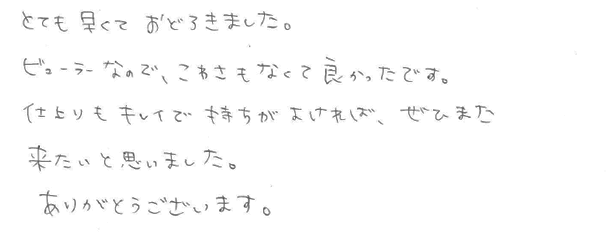 とても早くておどろきました。
ビューラーなので、こわさもなくて良かったです。
仕上りもキレイで持ちがよければ、ぜひまた
来たいと思いました。
ありがとうございます。